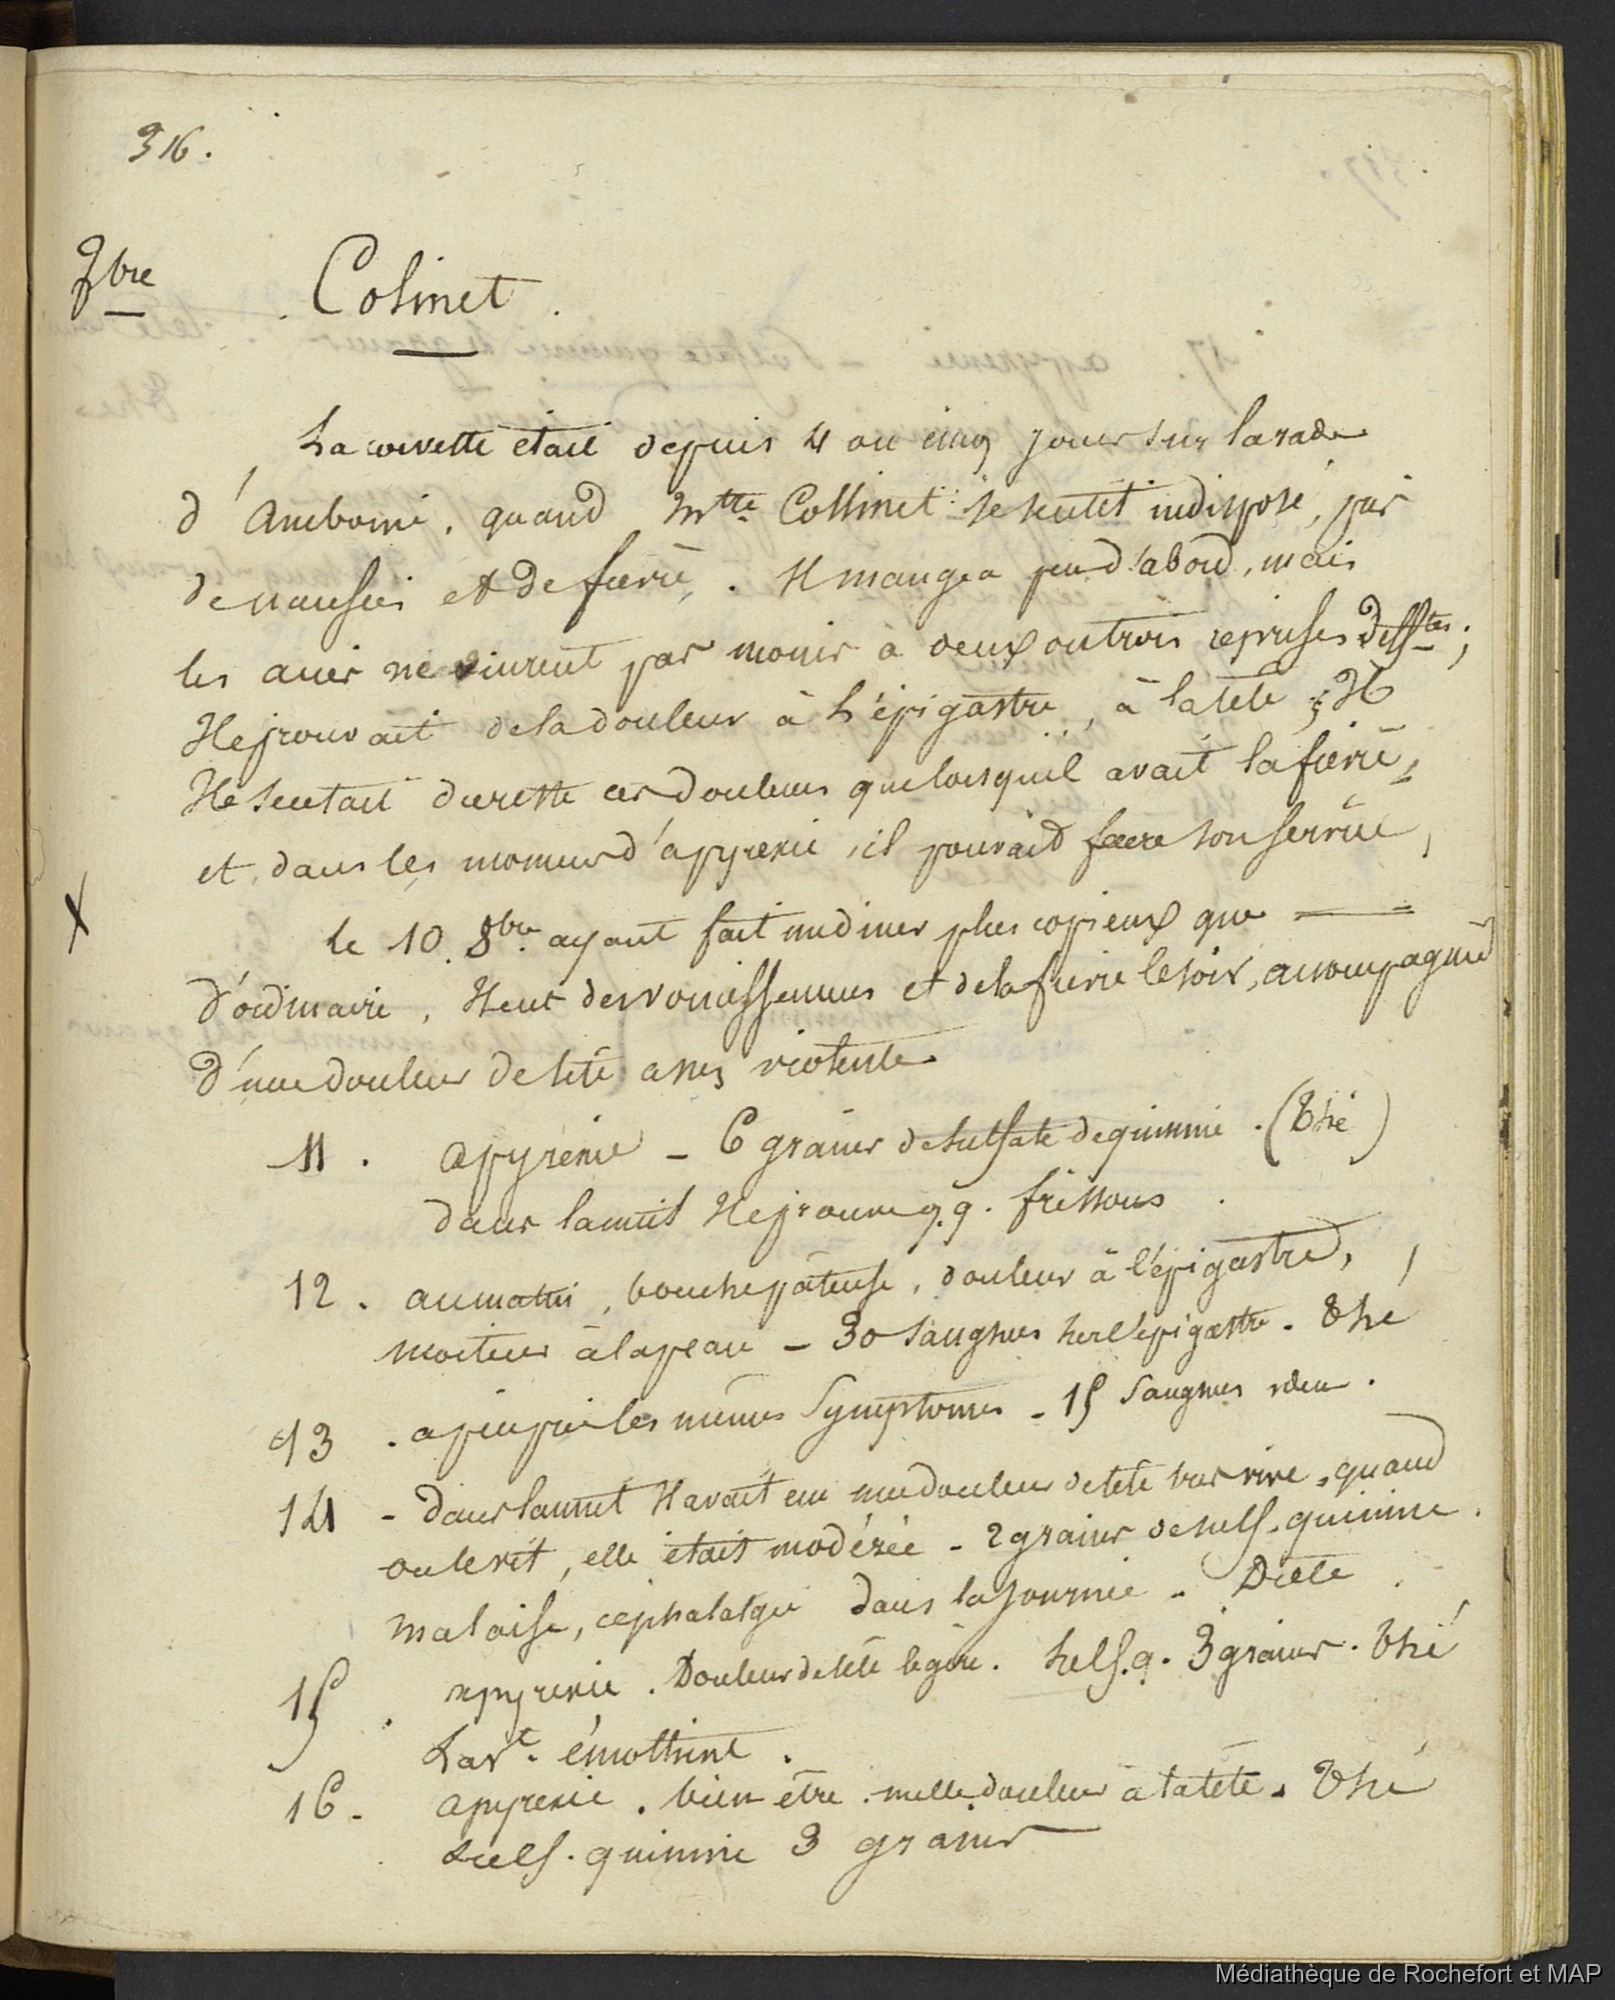 316.
8bre
Colinet.
La corvette était depuis 4 ou cinq jours sur la rade
d'Amboine, quand Mtre Collinet se sentit indisposé, par
de nausées et de fièvre. Il mangea peu d'abord, mais
les accès ne vinrent pas moins à deux ou trois reprises ;
Il éprouvait de la douleur à l'épigastre, à la tête ; Il
Il ne sentait du reste ces douleurs que lorsqu'il avait la fièvre,
et dans les momens d'apyrexie, il pouvait faire son service,
X
le 10. 8bre ayant fait un diner plus copieux que
d'ordinaire, Il eut des vomissemens et de la fièvre le soir, accompagnée
d'une douleur de tête assez violente
11. apyrexie - 6 grains de sulfate de quinine. (Thé)
dans la nuit Il éprouve q.q. frissons
12. au matin, bouche pâteuse, douleur à l'épigastre,
moiteur à la peau - 30 sangsues sur l'épigastre. Thé
13. à peu près les mêmes symptomes - 15 sangsues idem.
14 - dans la nuit Il avait eu une douleur de tête bas vive, quand
on le vit, elle était modérée - 2 grains de sulf. quinine.
malaise, céphalalgie dans la journée. Diète
15. apyrexie. Douleur de tête légère. sulf. q. 3 grains. Thé
Lavt. émollient.
16 - apyrexie. bien être. nulle douleur à la tête. Thé
sulf. quinine 3 grains
Médiathèque de Rochefort et MAP